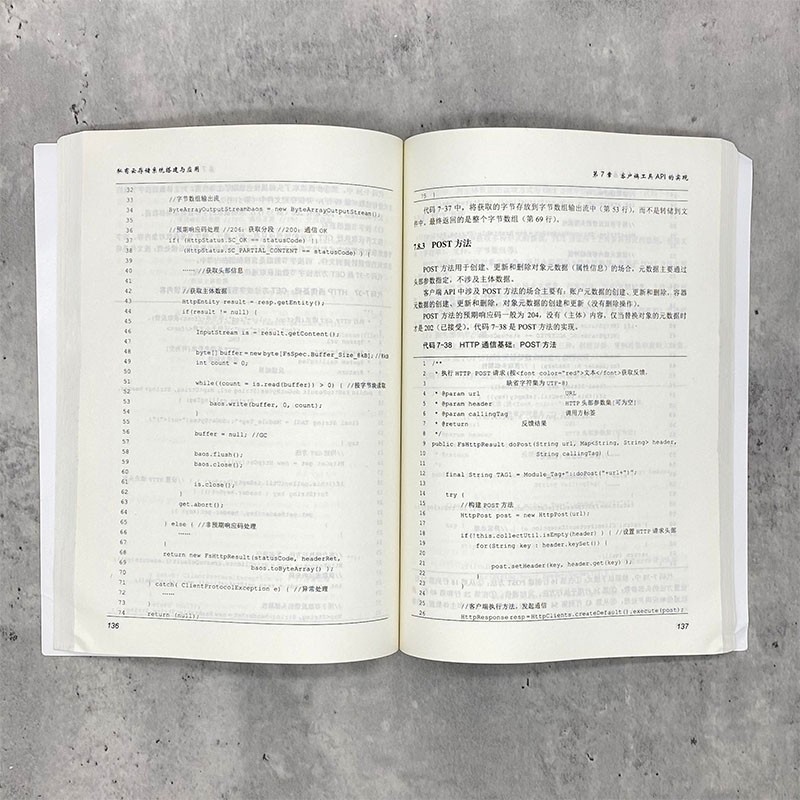 私有云存储系统搭建与应用
32
33 //字节数组输出流
34 ByteArrayOutputStreambaos = new ByteArrayOutputStream();
35
36 //预期响应码处理 //206：获取分段 //200：通信OK
37 if( (HttpStatus.SC_OK == statusCode) ||
38 (HttpStatus.SC_PARTIAL_CONTENT == statusCode) ) {
39
40 ……//获取头部信息
41
42 //获取主体数据
43 HttpEntity result = resp.getEntity();
44 if(result != null) {
45
46 InputStream is = result.getContent();
47
48 byte[] buffer = new byte[FsSpec.Buffer_Size_8kB]; //8kB
49 int count = 0;
50
51 while((count = is.read(buffer)) > 0) { //按字节块读取
52
53 baos.write(buffer, 0, count);
54 }
55
56 buffer = null; //GC
57
58 baos.flush();
59 baos.close();
60
61 is.close();
62 }
63 get.abort();
64
65 } else { //非预期响应码处理
66 ……
67 }
68 return new FsHttpResult(statusCode, headerRet,
69 baos.toByteArray() );
70
71 } catch( ClientProtocolException e) { //异常处理
72 ……
73 }
74 return (null);
136
第7章 客户端工具API的实现
75 }
代码 7-37 中，将获取的字节存放到字节数组输出流中（第 53 行），而不是转储到文
件中，最终返回的是整个字节数组（第 69 行）。
7.8.3 POST 方法
POST 方法用于创建、更新和删除对象元数据（属性信息）的场合，元数据主要通过
头部参数指定，不涉及主体数据。
客户端 API 中涉及 POST 方法的场合主要有：账户元数据的创建、更新和删除，容器
元数据的创建、更新和删除，对象元数据的创建和更新（没有删除操作）。
POST 方法的预期响应码一般为 204，没有（主体）内容，仅当替换对象的元数据时
才是 202（已接受）。代码 7-38 是 POST 方法的实现。
代码7-38 HTTP 通信基础：POST 方法
1 /**
2 * 执行HTTP POST 请求(按<font color="red">文本</font>获取反馈，
3 缺省字符集为 UTF-8)
4 * @param url URL
5 * @param header HTTP 头部参数集[可为空]
6 * @param callingTag 调用方标签
7 * @return 反馈结果
8 */
9 public FsHttpResult doPost(String url, Map<String, String> header,
10 String callingTag) {
11
12 final String TAG1 = Module_Tag+"::doPost("+url+")";
13
14 try {
15 //构建 POST 方法
16 HttpPost post = new HttpPost(url);
17
18 if(!this.collectUtil.isEmpty(header) ) { //设置 HTTP 请求头部
19 for(String key : header.keySet()) {
20
21 post.setHeader(key, header.get(key) );
22 }
23 }
24
25 //客户端执行方法，发起通信
26 HttpResponse resp = HttpClients.createDefault().execute(post);
137